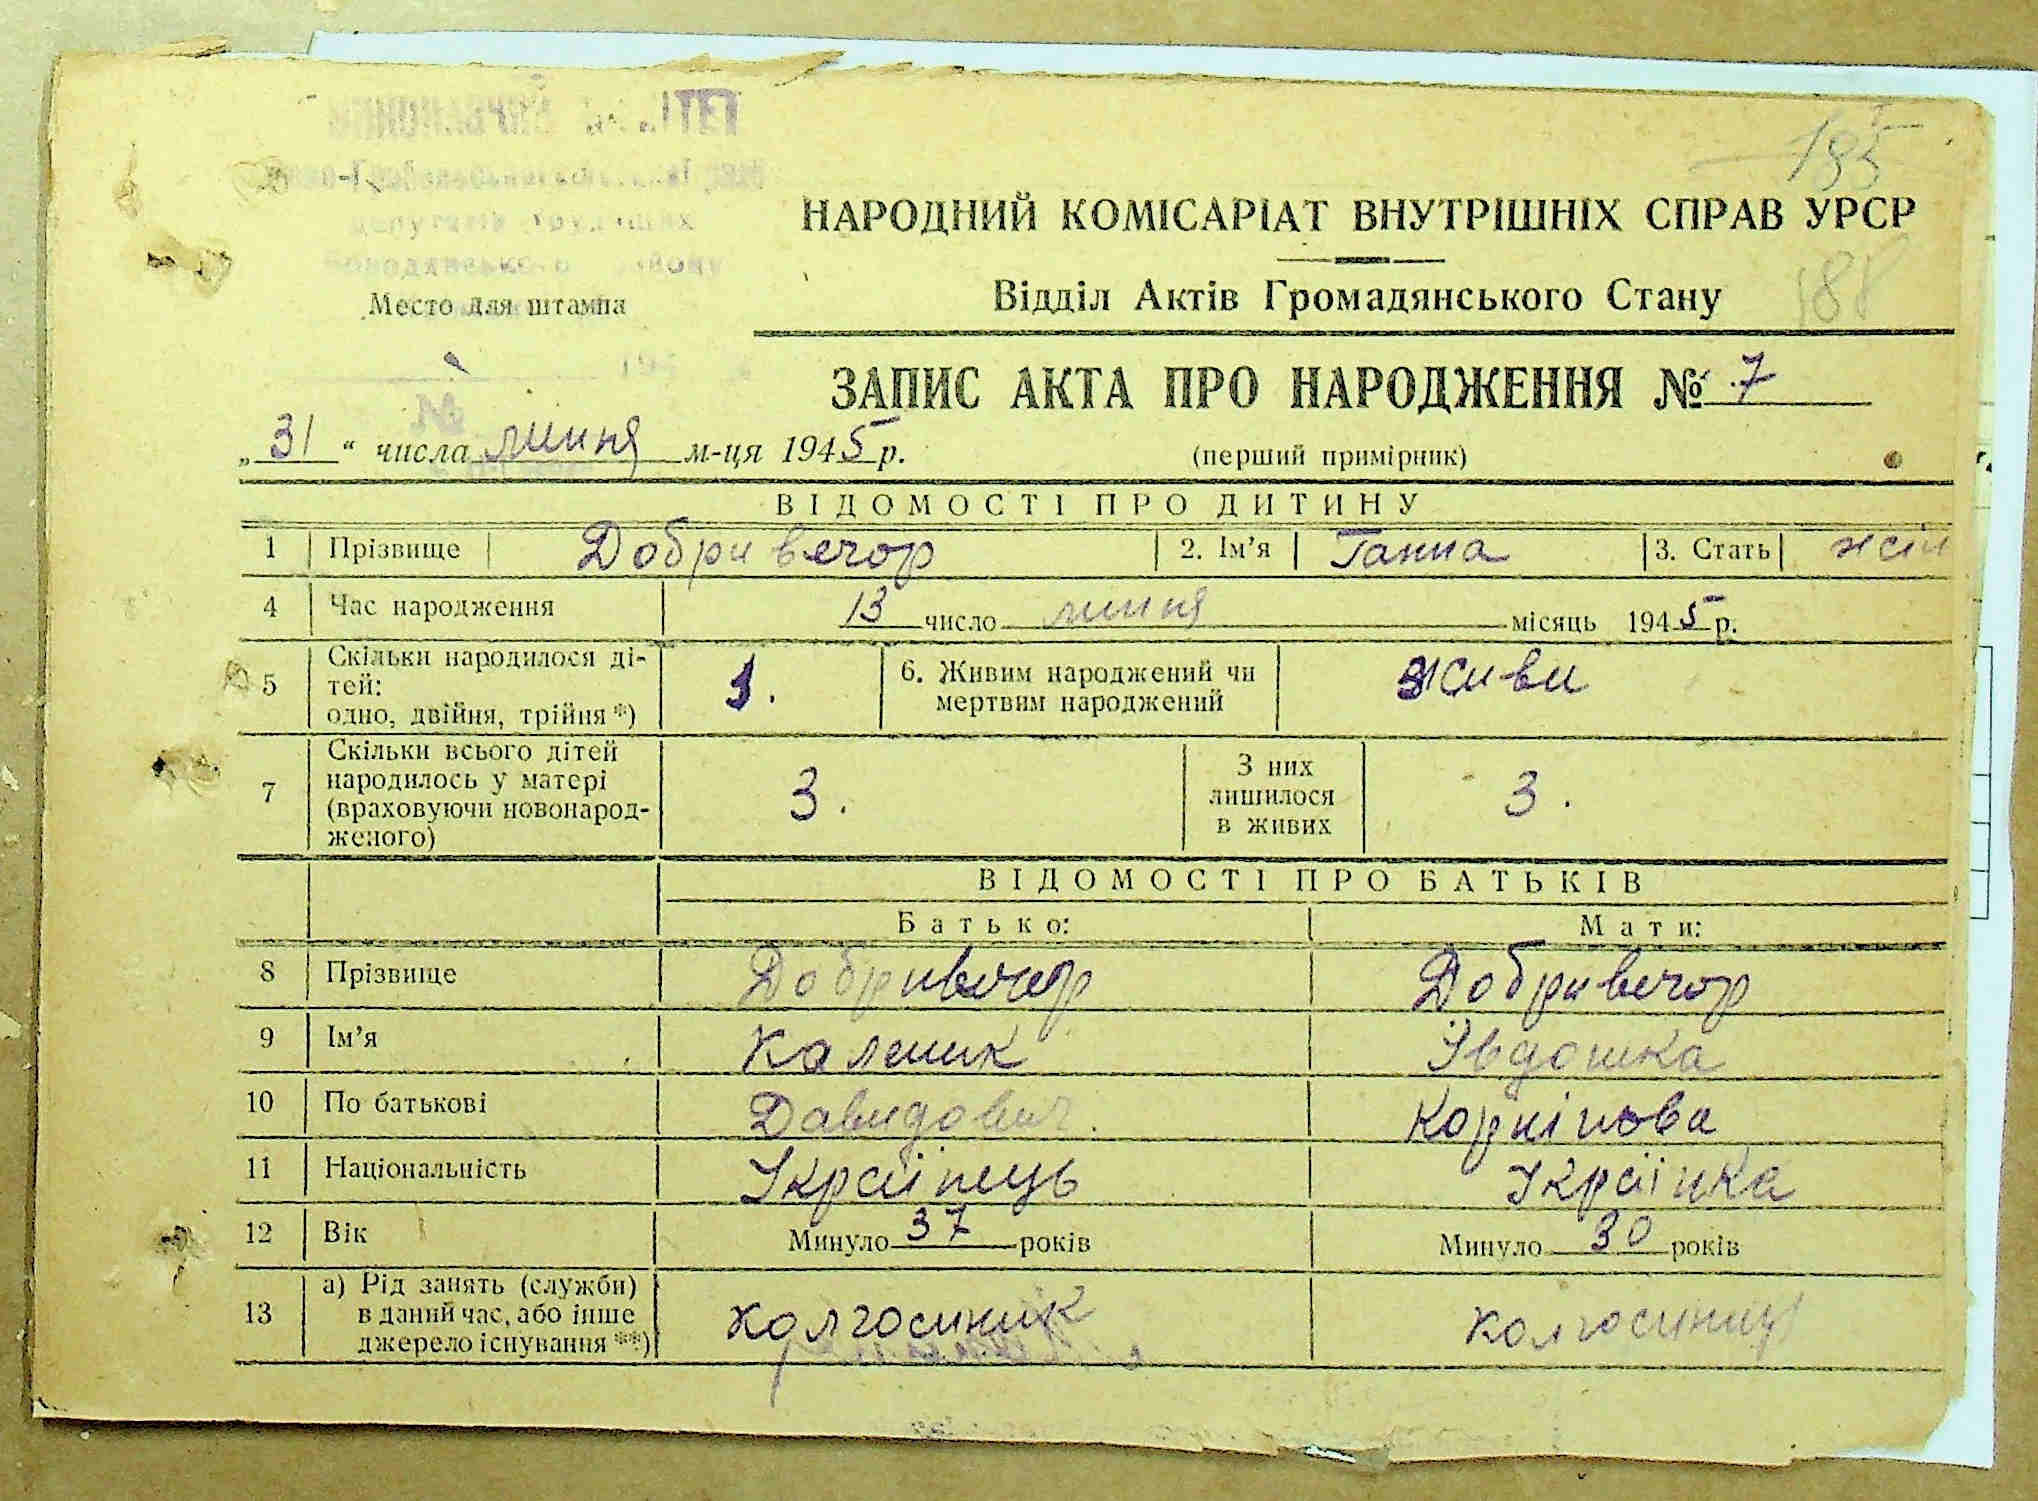 185
НАРОДНИЙ КОМІСАРІАТ ВНУТРІШНІХ СПРАВ УРСР
188
Відділ Актів Громадянського Стану
Место для штампа
ЗАПИС АКТА ПРО НАРОДЖЕННЯ № 7
„31“ числа липня м-ця 1945 р.
(перший примірник)
ВІДОМОСТІ ПРО ДИТИНУ
1 Прізвище Добривечор 2. Ім’я Ганна 3. Стать жін
4 Час народження 13 число липня місяць 1945 р.
5 Скільки народилося ді-
тей:
одно, двійня, трійня *)
1.
6. Живим народжений чи
мертвим народжений
живи
7 Скільки всього дітей
народилось у матері
(враховуючи новонарод-
женого)
3.
З них
лишилося
в живих
3.
ВІДОМОСТІ ПРО БАТЬКІВ
Батько: Мати:
8 Прізвище Добривечор Добривечор
9 Ім’я Каленик Івдошка
10 По батькові Давидович Корніпова
11 Національність Українець Українка
12 Вік Минуло 37 років Минуло 30 років
13 а) Рід занять (служби)
в даний час, або інше
джерело існування **)
колгоспник колгоспниця